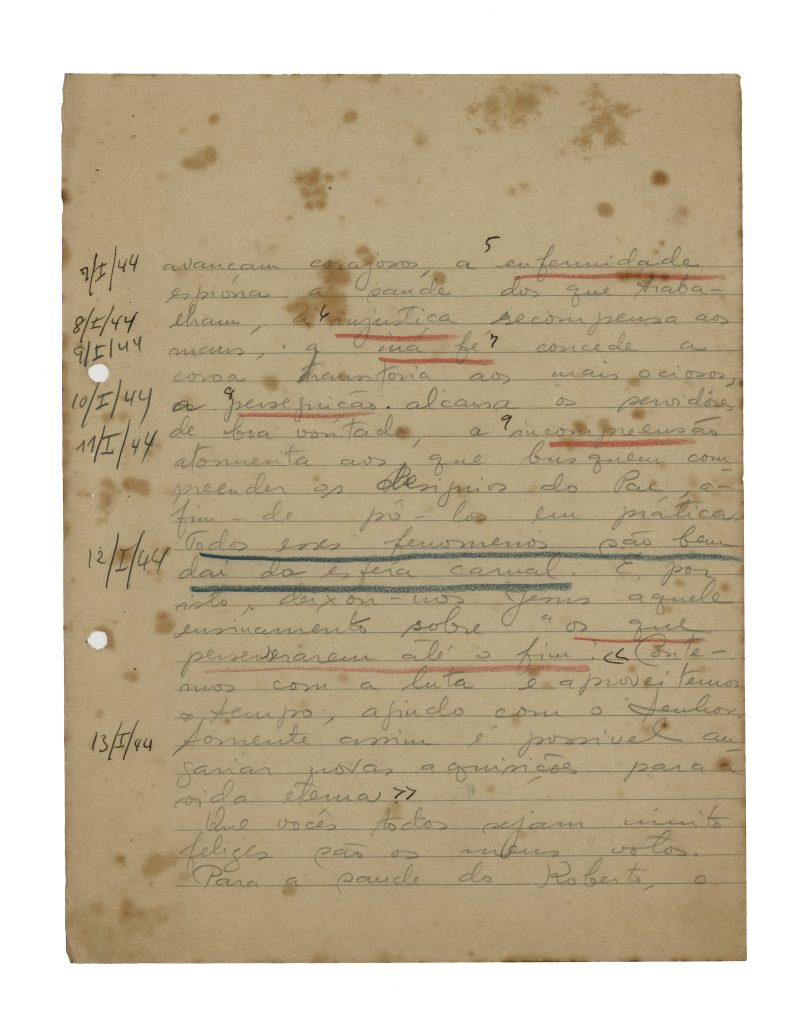 7/I/44 avançam corajosos, a ⁵ enfermidade
espiona a saude dos que traba-
8/I/44 lham, a ⁶ injustiça recompensa aos
9/I/44 maus, a má fé ⁷ concede a
coroa transitoria aos mais ociosos,
10/I/44 a ⁸ perseguição alcansa os servidôres
11/I/44 de boa vontade, a ⁹ incompreensão
atormenta aos que busquem com
preender os designios do Pai, á-
fim-de pô-los em prática.
Todos esses fenomenos são bem
12/I/44 daí da esfera carnal. E, por
isto, deixou-nos Jesus aquele
ensinamento sobre "os que
perseverarem até o fim". << Conte-
mos com a luta e aproveitemos
o tempo, agindo com o Senhor.
13/I/44 Somente assim é possivel an
gariar novas aquisições para a
vida eterna." >>
Que vocês todos sejam muito
felizes são os meus votos.
Para a saude do Roberto, o